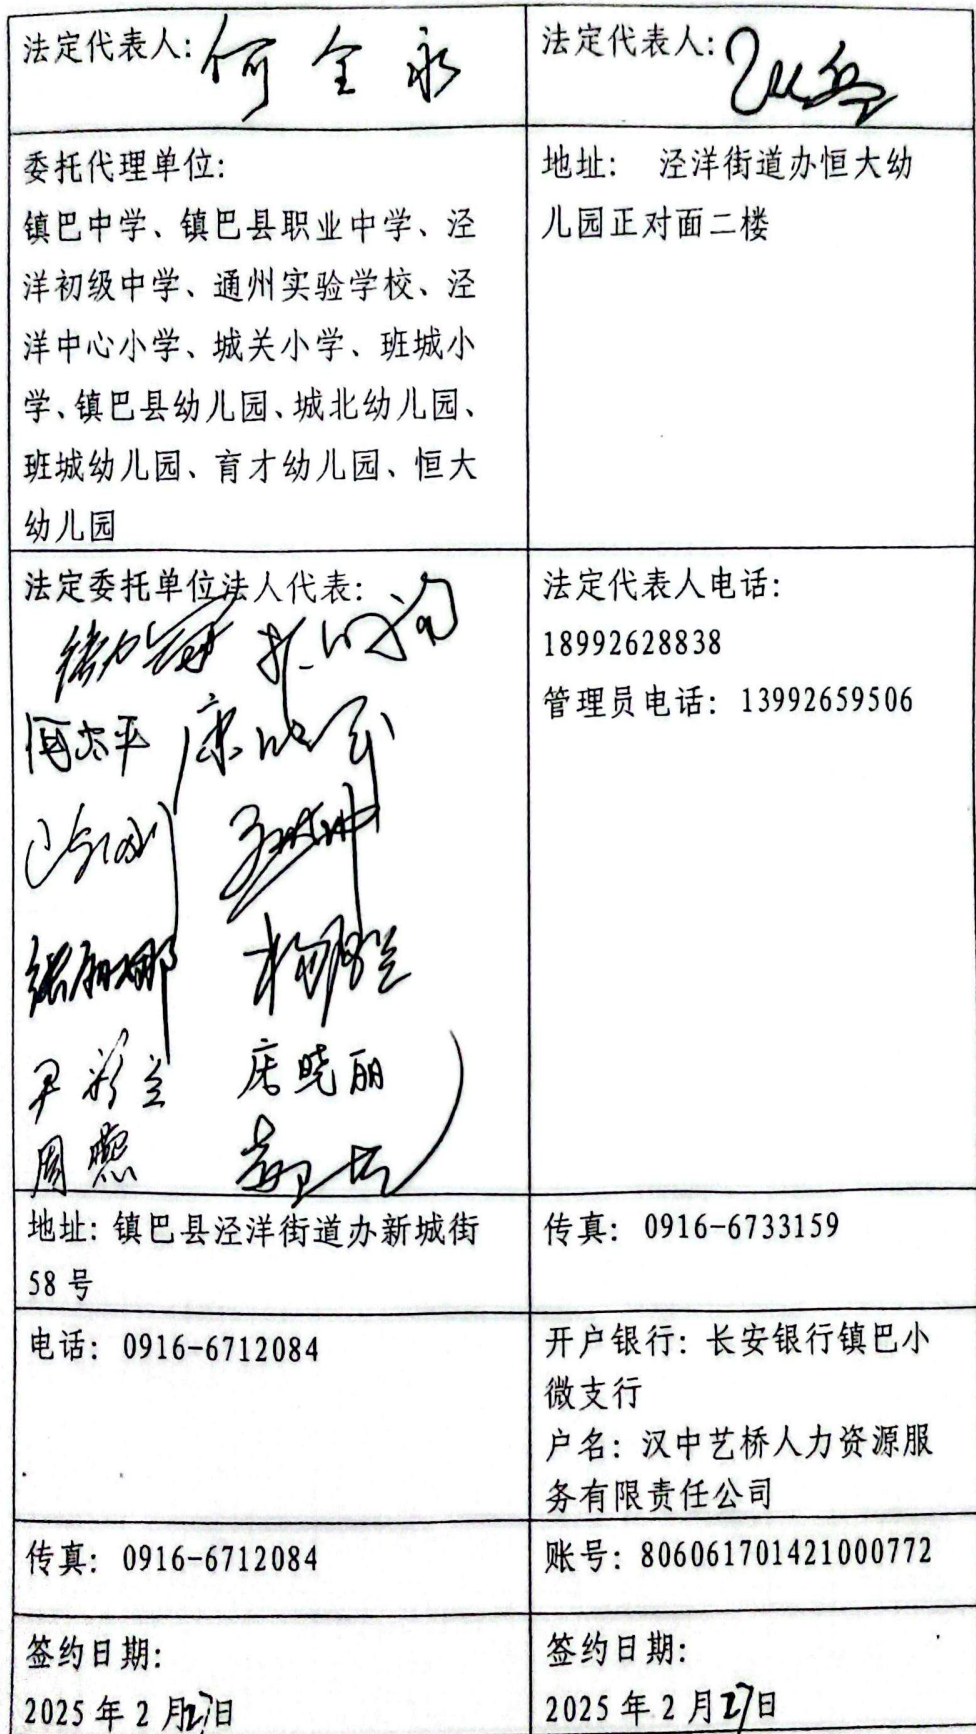 法定代表人：何全永
法定代表人：
委托代理单位：
镇巴中学、镇巴县职业中学、泾
洋初级中学、通州实验学校、泾
洋中心小学、城关小学、班城小
学、镇巴县幼儿园、城北幼儿园、
班城幼儿园、育才幼儿园、恒大
幼儿园
地址： 泾洋街道办恒大幼
儿园正对面二楼
法定委托单位法人代表：
周燕
法定代表人电话：
18992628838
管理员电话：13992659506
地址：镇巴县泾洋街道办新城街
58 号
传真：0916-6733159
电话：0916-6712084
开户银行：长安银行镇巴小
微支行
户名：汉中艺桥人力资源服
务有限责任公司
传真：0916-6712084
账号：806061701421000772
签约日期：
2025 年 2 月27日
签约日期：
2025 年 2 月27日